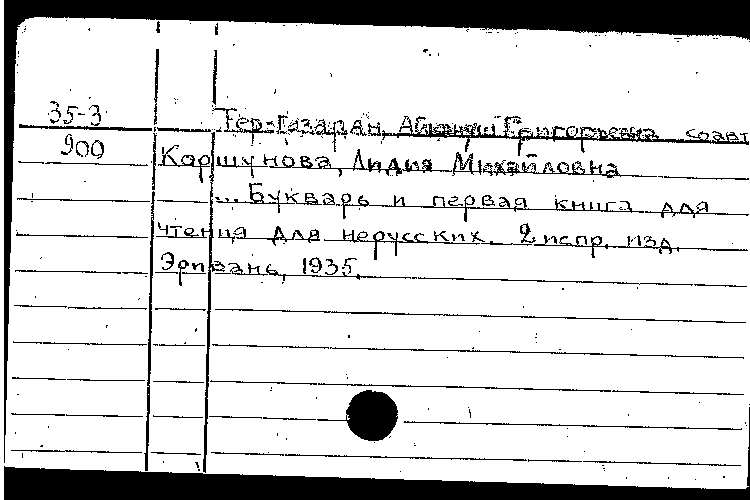 35-3
Тер-Газарян, Григорьевна соавт
900
Коршунова, Лидия Михайловна
... Букварь и первая книга для
чтения для нерусских. 2 испр. изд.
Эривань, 1935.